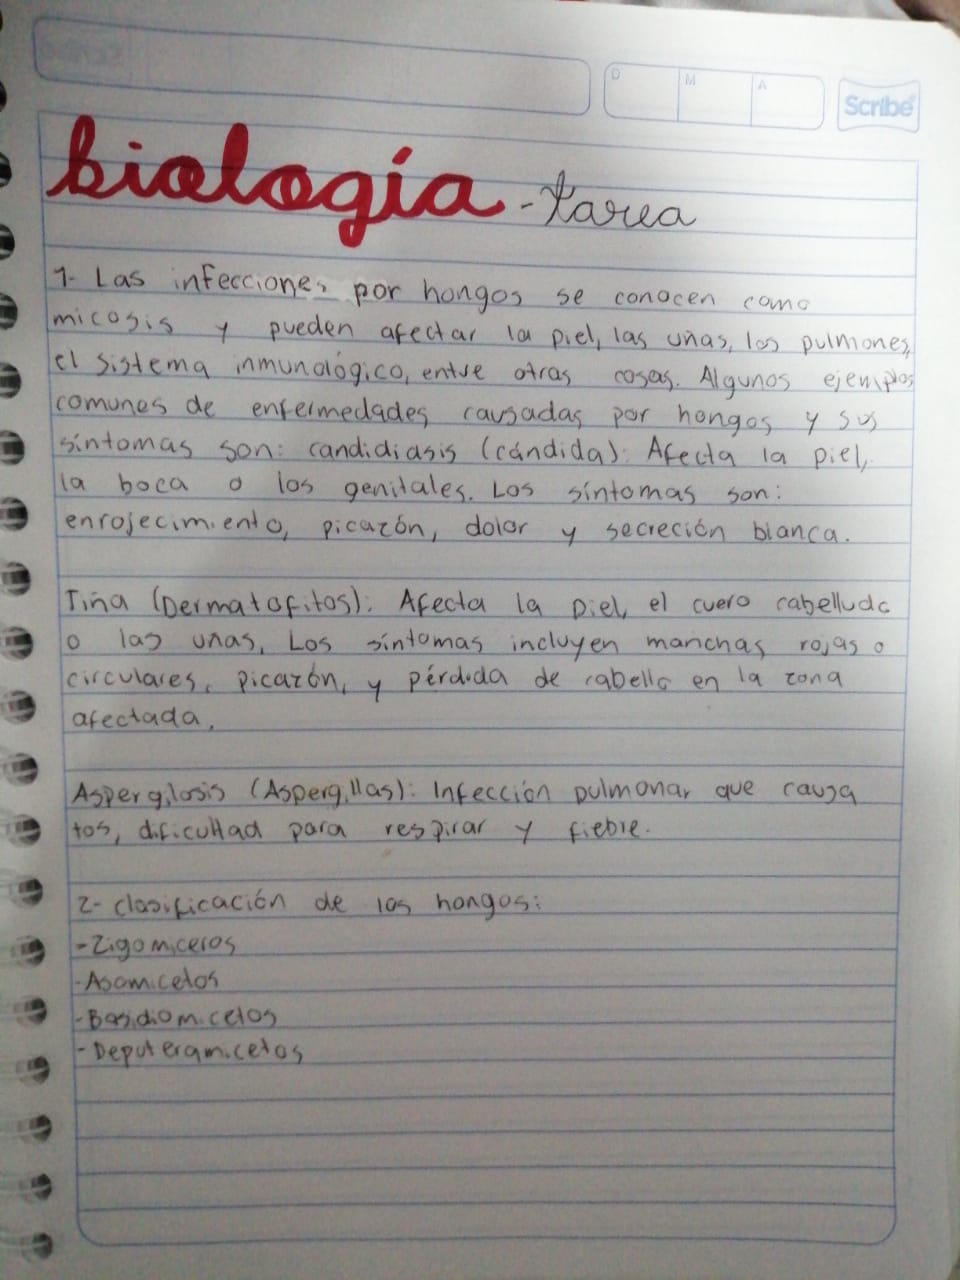 D M A
Scribe
biología - tarea
1- Las infecciones por hongos se conocen como
micosis y pueden afectar la piel, las uñas, los pulmones,
el sistema inmunológico, entre otras cosas. Algunos ejemplos
comunes de enfermedades causadas por hongos y sus
síntomas son: candidiasis (cándida): Afecta la piel,
la boca o los genitales. Los síntomas son:
enrojecimiento, picazón, dolor y secreción blanca.
Tiña (Dermatofitos): Afecta la piel, el cuero cabelludo
o las uñas, Los síntomas incluyen manchas rojas o
circulares, picazón, y pérdida de cabello en la zona
afectada.
Aspergilosis (Aspergillas): Infección pulmonar que causa
tos, dificultad para respirar y fiebre.
2- clasificación de los hongos:
-Zigomiceros
-Asomicetos
-Basidiomicetos
-Deputeramicetos